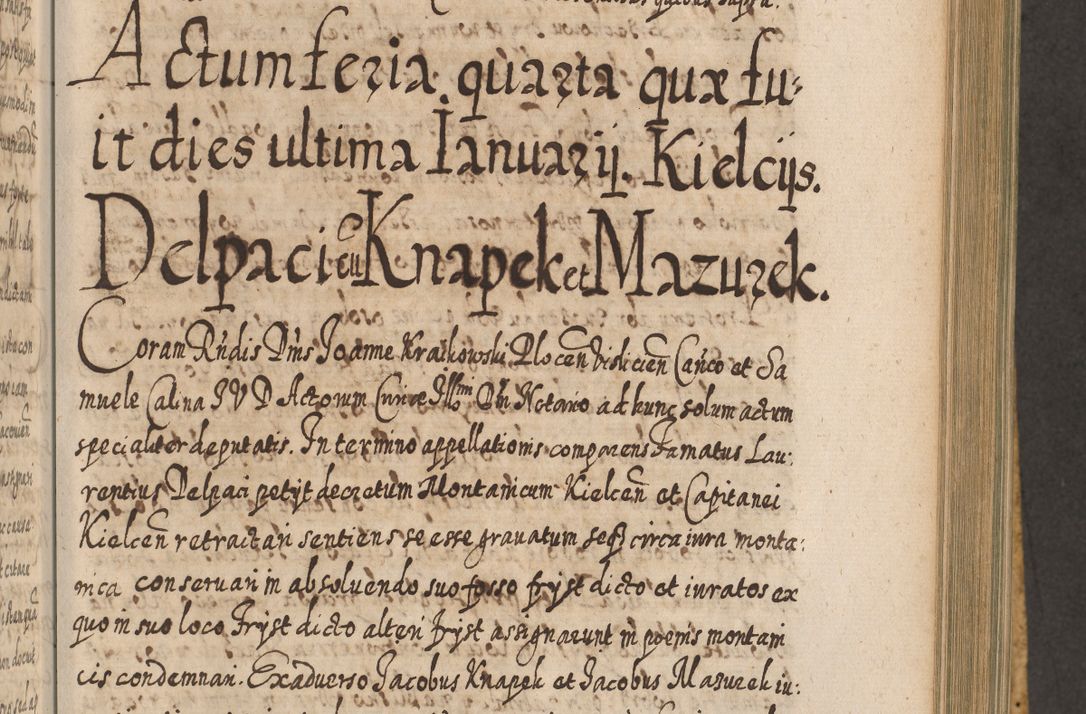 Actum feria quarta quæ fu-
it dies ultima Ianuarij. Kielcijs.
Delpaci cũ Knapek et Mazurek.
Coram Rñdis Dñis Joanne Kraikowski Plocen̄ Vislicien̄ Cañco et Sa
muele Calina J V D Actorum Curiæ Illmi Dñi Notario ad hunc solum actum
specialiter deputatis. In termino appellationis comparens Famatus Lau-
rentius Delpaci petijt decretum Montanicum Kielcen̄ et Capitanei
Kielcen̄ retractari sentiens se esse grauatum seq̃ circa iura monta-
nica conseruari in absoluendo suo fosso fryst dicto et iuratos ex
quo in suo loco Fryst dicto alteri fryst assignarunt in poenis montani
cis condemnari. Exaduerso Jacobus Knapek et Jacobus Mazurek iu-